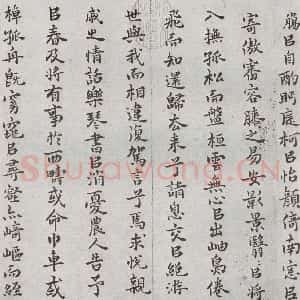 觴以自酌眄庭柯以怡顏倚南窓以
寄傲審容膝之易安景翳以將
入撫孤松而盤桓雲無心以出岫鳥倦
飛而知還歸去來兮請息交以絶游
世與我而相違復駕言兮焉求悅親
戚之情話樂琴書以消憂農人告予
以春及將有事於西疇或命巾車或
棹孤舟既窈窕以尋壑亦崎嶇而經
Shufawang.CN